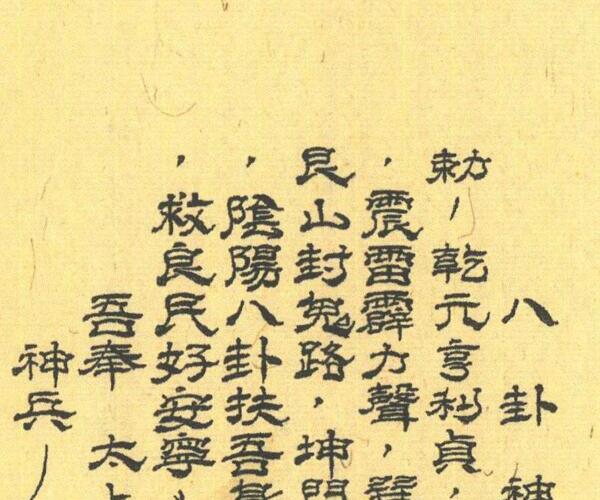 八卦神
勅ノ乾元亨利貞,
,震雷霹力聲,
艮山封鬼路,坤門
,陰陽八卦扶吾身
,救良民好安寧
吾奉 太上
神兵